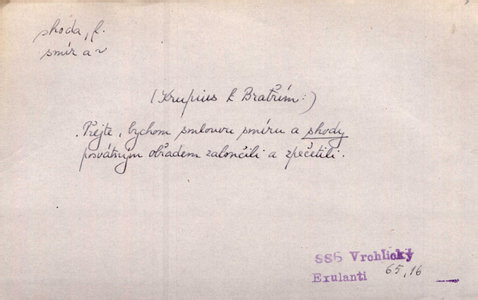 shoda, f.
smír a ~
(Krupius k Bratřím:)
Přejte, bychom smlouvu smíru a shody
posvátným obřadem zakončili a zpečetili.
S86 Vrchlický
Exulanti 65, 16